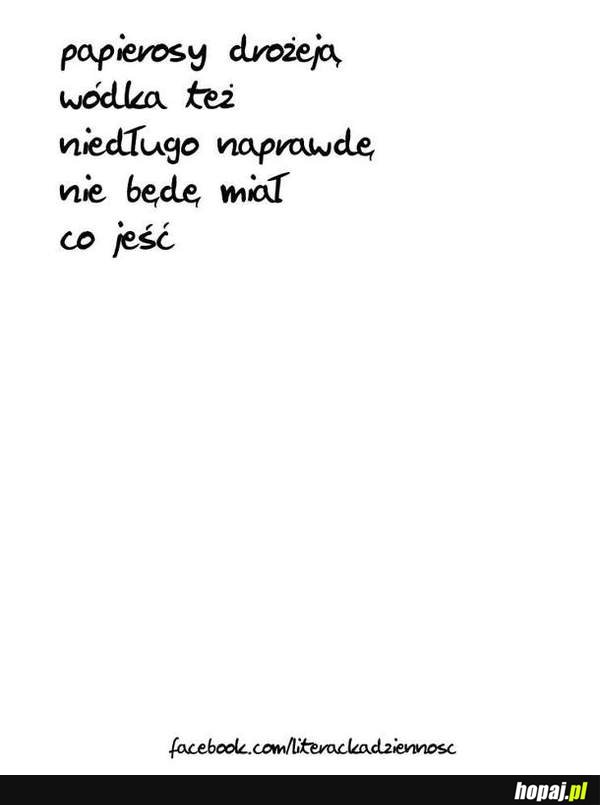 papierosy drożeją
wódka też
niedługo naprawdę
nie będę miał
co jeść
facebook.com/literackadziennosc
hopaj.pl